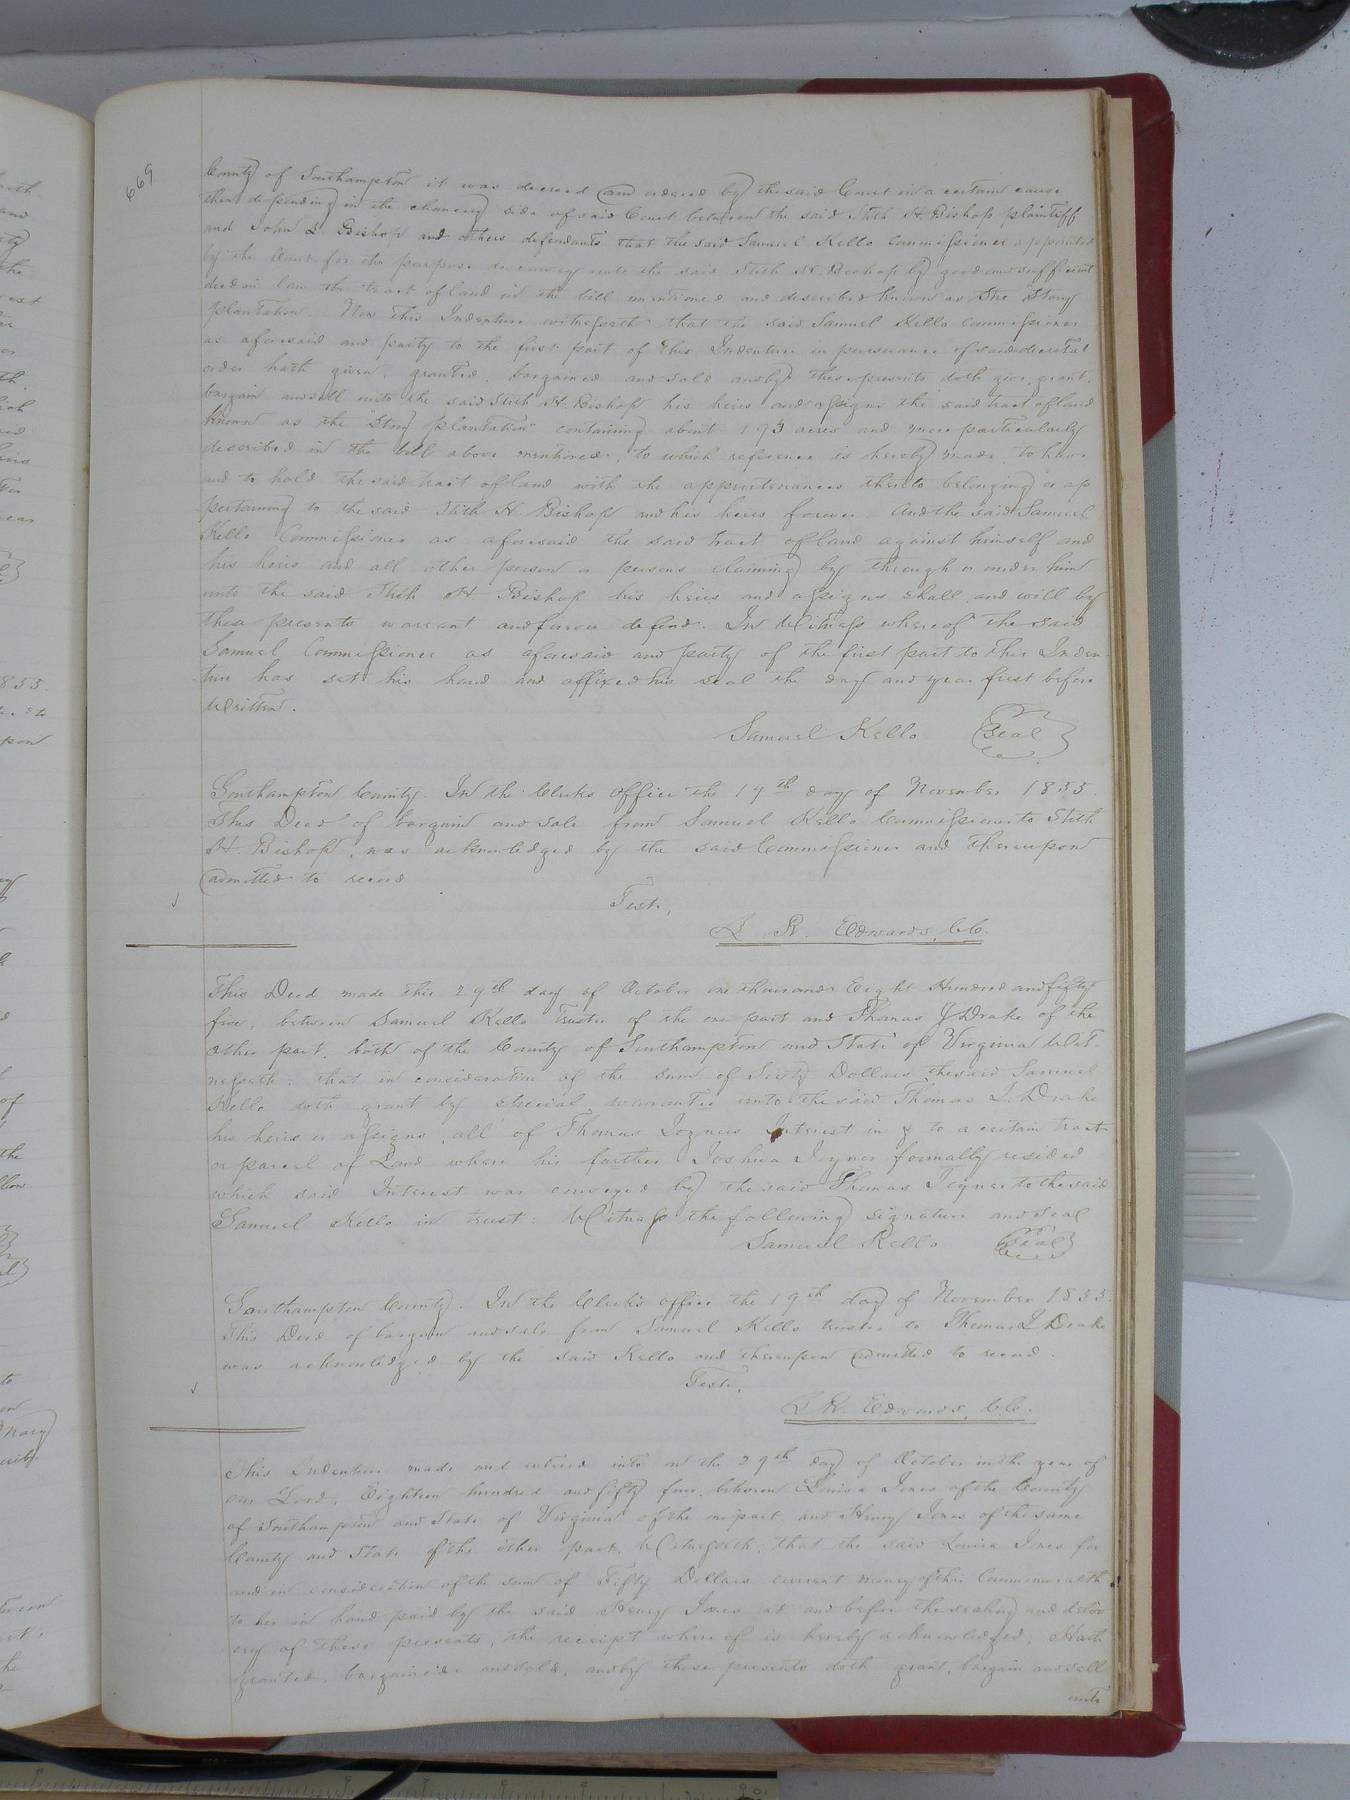 669
County of Southampton it was decreed and ordered by the said Court in a certain cause
then depending in the chancery side of said Court between the said Stith H. Bishop plaintiff
and John L Bishop and others defendants that the said Samuel Kello Commissioner appointed
by the Court for the purpose to convey unto the said Stith H. Bishop by good and sufficient
deed in law the tract of land in the bill mentioned and described known as the Story
plantation. Now This Indenture witnesseth that the said Samuel Kello Commissioner
as aforesaid and party to the first part of this Indenture in pursuance of said decretal
order hath given, granted, bargained and sold and by these presents doth give, grant,
bargain and sell unto the said Stith H. Bishop his heirs and assigns the said tract of land
known as the "Story plantation" containing about 193 acres and more particularly
described in the bill above mentioned, to which reference is hereby made, to have
and to hold the said tract of land with the appurtenances thereto belonging or ap
pertaining to the said Stith H Bishop and his heirs forever. And the said Samuel
Kello Commissioner as aforesaid the said tract of land against himself and
his heirs and all other person or persons claiming by through or under him
unto the said Stith H Bishop his heirs and assigns shall and will by
these presents warrant and forever defend. In Witness whereof the said
Samuel Commissioner as aforesaid and party of the first part to this Inden
ture has set his hand and affixed his seal the day and year first before
Written.
Samuel Kello Seal
Southampton County. In the Clerks Office the 19th day of November 1855.
This Deed of bargain and sale from Samuel Kello Commissioner to Stith
H. Bishop, was acknowledged by the said Commissioner and thereupon
admitted to record
Test,
L R. Edwards, C.C.
This Deed made this 29th day of October one thousand Eight Hundred and fifty
five, between Samuel Kello Trustee of the one part and Thomas J Drake of the
other part, both of the County of Southampton and State of Virginia Wit-
nesseth: that in consideration of the sum of Sixty Dollars the said Samuel
Kello doth grant by special warrantee unto the said Thomas L. Drake
his heirs or assigns, all of Thomas Joyners Interest in & to a certain tract
or parcel of Land where his father Joshua Joyner formally resided
which said Interest was conveyed by the said Thomas Joyner to the said
Samuel Kello in trust: Witness the following signature and seal
Samuel Kello Seal
Southampton County. In the Clerk's office the 19th day of November 1855.
This Deed of bargain and sale from Samuel Kello trustee to Thomas L Drake
was acknowledged by the said Kello and thereupon admitted to record.
Test,
L R. Edwards, C.C.
This Indenture made and entered into on the 29th day of October in the year of
our Lord, Eighteen hundred and fifty five, between Louisa Jones of the County
of Southampton and State of Virginia of the one part and Henry Jones of the same
County and State of the other part, Witnesseth, that the said Louisa Jones for
and in consideration of the sum of Fifty Dollars current money of this Commonwealth
to her in hand paid by the said Henry Jones at and before the sealing and deliv
ery of these presents, the receipt where of is hereby acknowledged, Hath
granted, bargained and sold, and by these presents doth grant, bargain and sell
unto